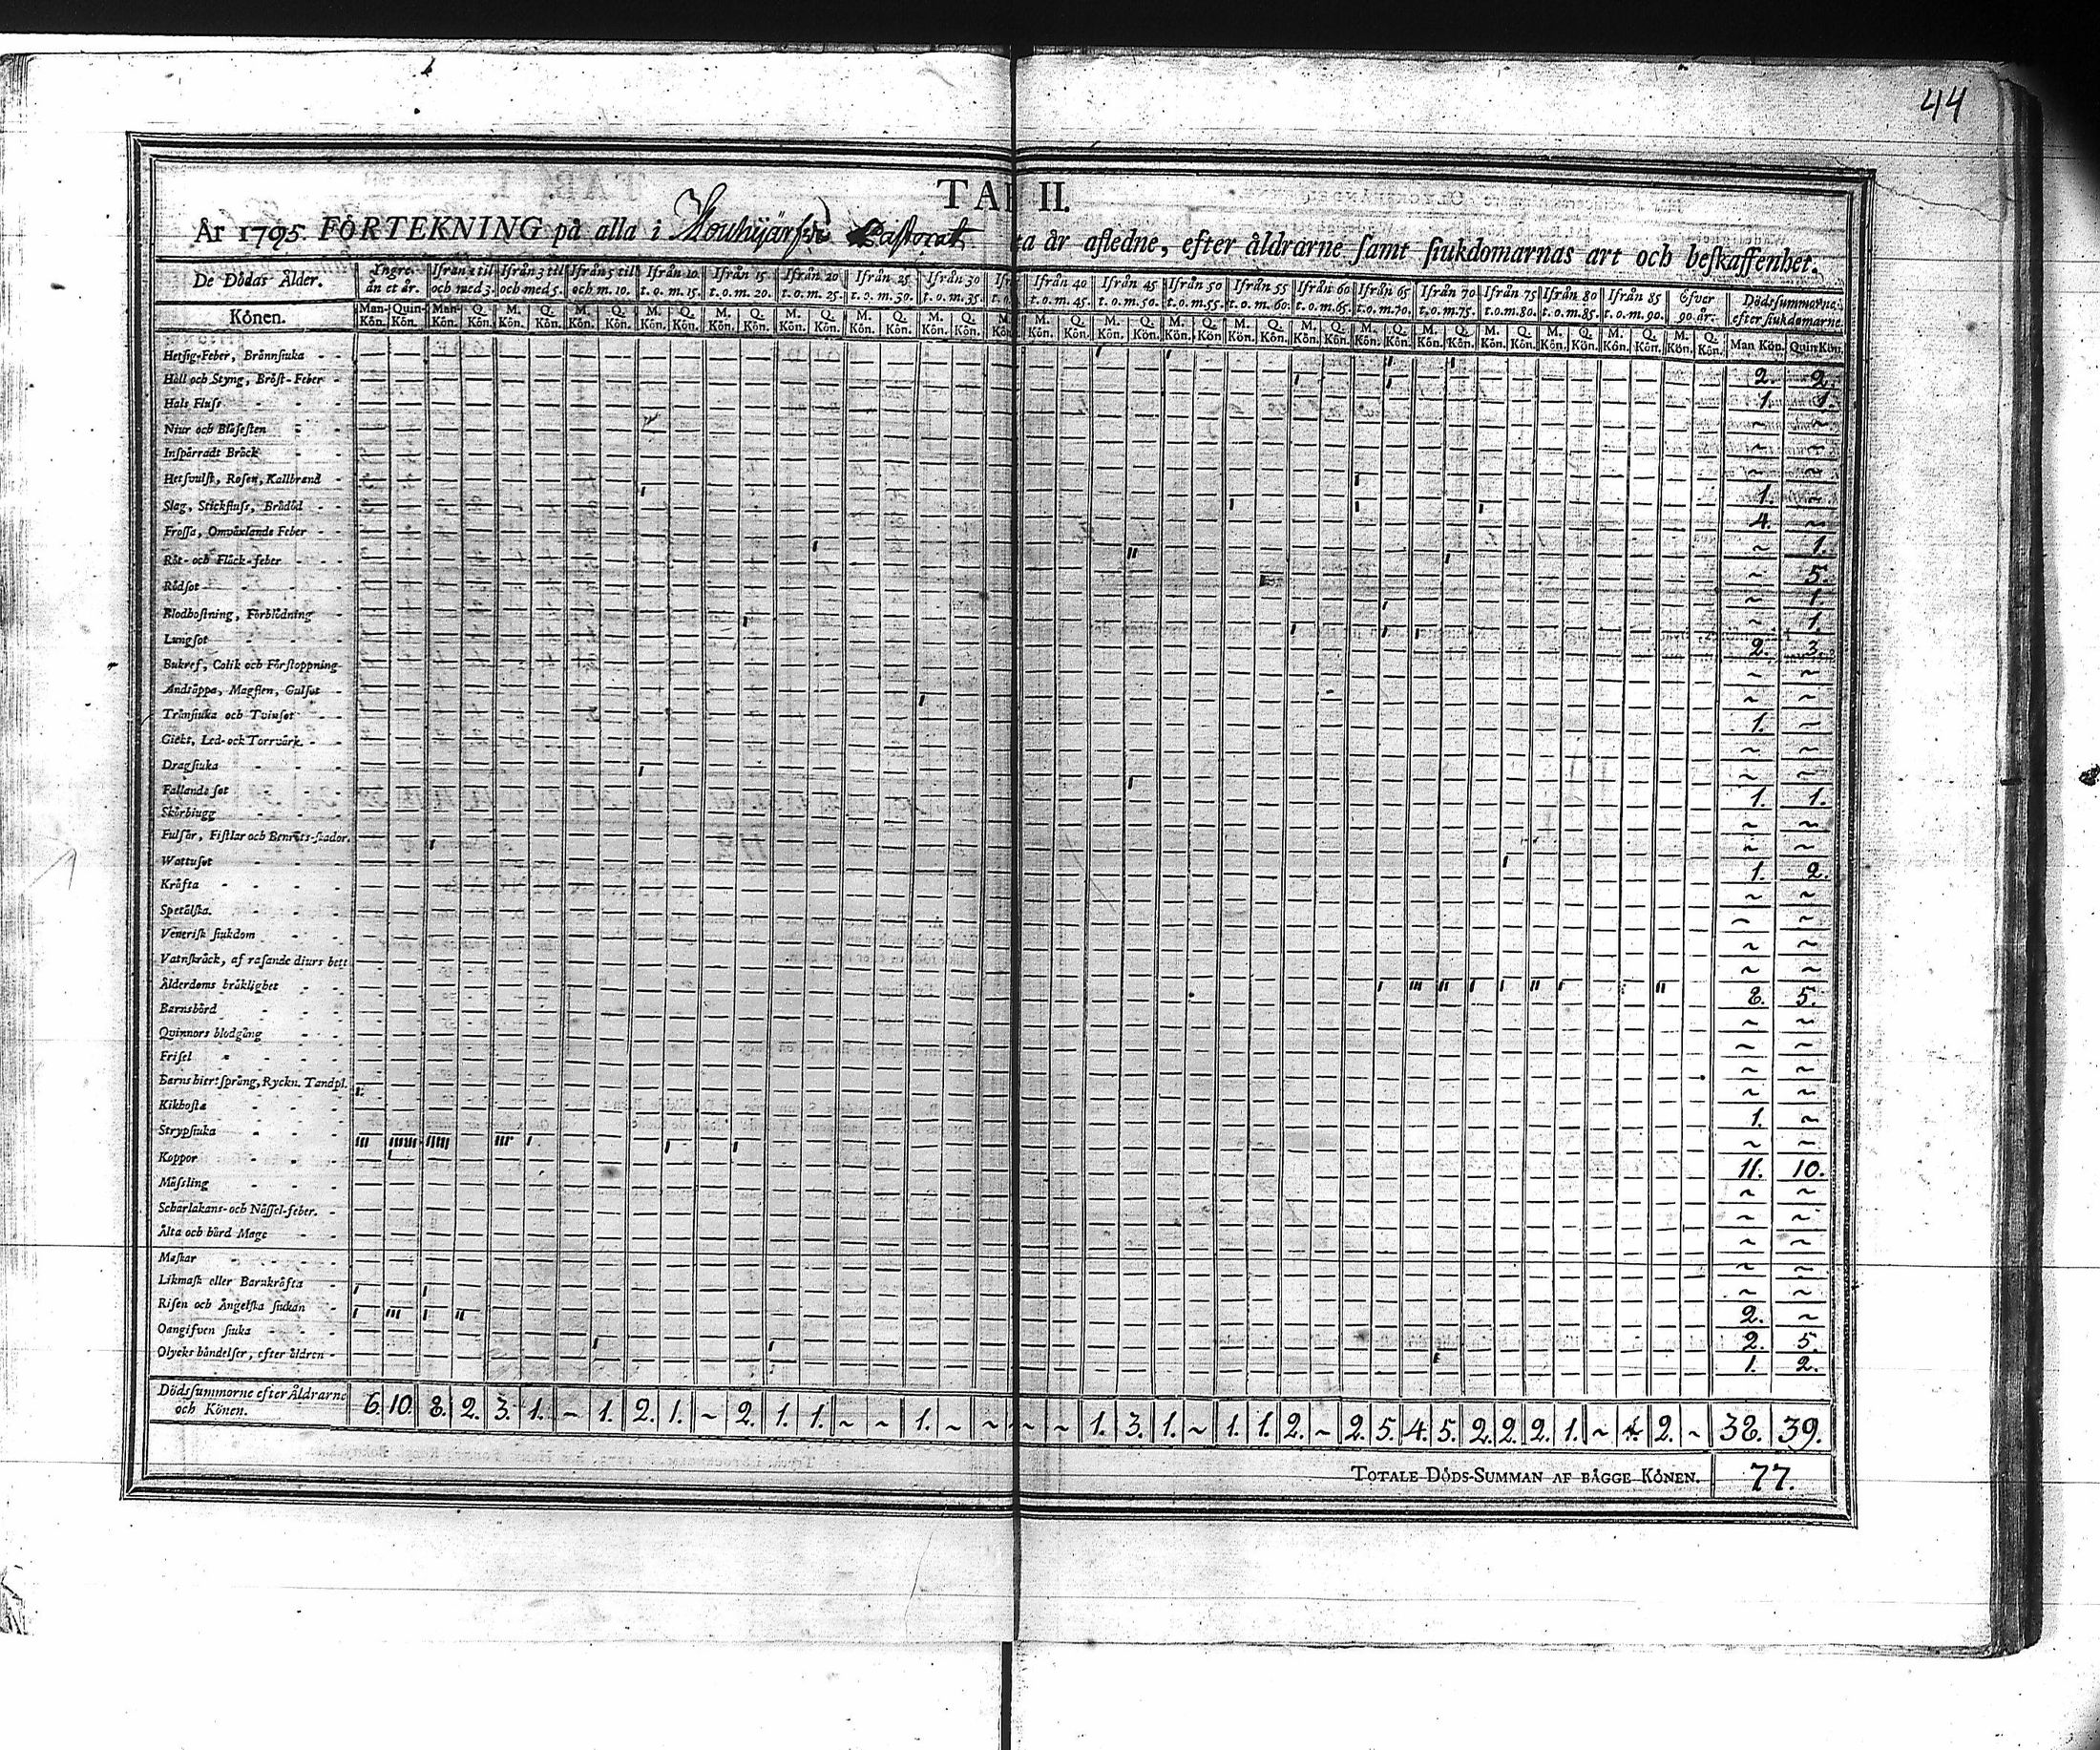 44
TAB II.
År 1795. FÖRTEKNING på alla i Mouhijärfvi Pastorat ta år afledne, efter åldrarne samt siukdomarnas art och beskaffenhet.
De Dödas Ålder. Yngre än et år. Ifrån 1 til och med 3. Ifrån 3 til och med 5. Ifrån 5 til och m. 10. Ifrån 10 t. o. m. 15. Ifrån 15 t. o. m. 20. Ifrån 20 t. o. m. 25. Ifrån 25 t. o. m. 30. Ifrån 30 t. o. m. 35. Ifr t. o. Ifrån 40 t. o. m. 45. Ifrån 45 t. o. m. 50. Ifrån 50 t. o. m. 55. Ifrån 55 t. o. m. 60. Ifrån 60 t. o. m. 65. Ifrån 65 t. o. m. 70. Ifrån 70 t. o. m. 75. Ifrån 75 t. o. m. 80. Ifrån 80 t. o. m. 85. Ifrån 85 t. o. m. 90. Öfver 90 år. Dödssummorne efter siukdomarne
Könen. Man-Kön. Quin-Kön. Man-Kön. Q. Kön. M. Kön. Q. Kön. M. Kön. Q. Kön. M. Kön. Q. Kön. M. Kön. Q. Kön. M. Kön. Q. Kön. M. Kön. Q. Kön. M. Kön. Q. Kön. M. Kön. M. Kön. Q. Kön. M. Kön. Q. Kön. M. Kön. Q. Kön. M. Kön. Q. Kön. M. Kön. Q. Kön. M. Kön. Q. Kön. M. Kön. Q. Kön. M. Kön. Q. Kön. M. Kön. Q. Kön. M. Kön. Q. Kön. M. Kön. Q. Kön. Man Kön. Quin Kön.
Hetsig-Feber, Brännsiuka 2. 2.
Håll och Styng, Bröst-Feber 1. 1.
Hals Fluss ~ ~
Niur och Blåsesten ~ ~
Inspärradt Bråck ~ ~
Hetsvulst, Rosen, Kallbrand 1. ~
Slag, Stickfluss, Brådöd 4. ~
Frossa, Omväxlande Feber ~ 1.
Röt- och Fläck-feber ~ 5.
Rödsot ~ 1.
Blodhostning, Förblödning ~ 1.
Lungsot 2. 3.
Bukref, Colik och Förstoppning ~ ~
Andtäppa, Magsien, Gulsot ~ ~
Trånsiuka och Tvinsot 1. ~
Gickt, Led- och Torrvärk ~ ~
Dragsiuka ~ ~
Fallande sot 1. 1.
Skörbiugg ~ ~
Fulsår, Fistlar och Benröts-skador. ~ ~
Wattusot 1. 2.
Kräfta ~ ~
Spetälska. ~ ~
Venerisk siukdom ~ ~
Vatnskräck, af rasande diurs bett ~ ~
Ålderdoms bräklighet 8. 5.
Barnsbörd ~ ~
Qvinnors blodgång ~ ~
Frisel ~ ~
Barns hiertsprång, Ryckn. Tandpl. ~ ~
Kikhosta 1. ~
Strypsiuka ~ ~
Koppor 11. 10.
Mässling ~ ~
Scharlakans- och Nässel-feber. ~ ~
Älta och hård Mage ~ ~
Maskar ~ ~
Likmask eller Barnkräfta ~ ~
Risen och Ängelska siukan 2. ~
Oangifven siuka 2. 5.
Olycks händelser, efter åldren 1. 2.
Dödssummorne efter Åldrarne och Könen. 6. 10. 8. 2. 3. 1. ~ 1. 2. 1. ~ 2. 1. 1. ~ ~ 1. ~ ~ ~ ~ 1. 3. 1. ~ 1. 1. 2. ~ 2. 5. 4. 5. 2. 2. 2. 1. ~ 2. ~ 38. 39.
TOTALE DÖDS-SUMMAN AF BÅGGE KÖNEN. 77.